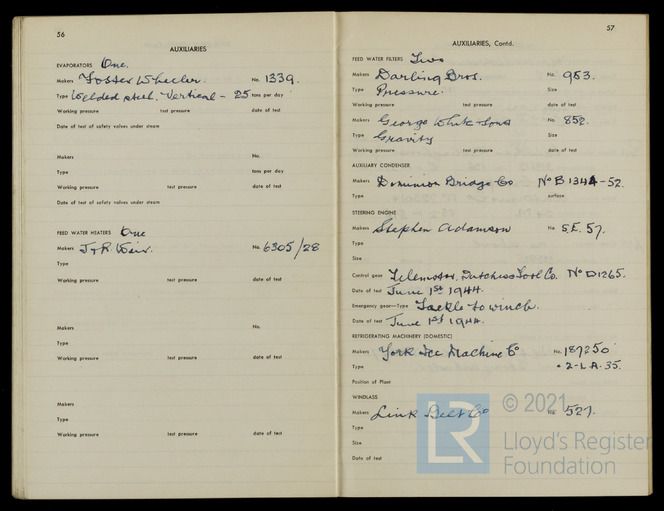 56
AUXILIARIES
EVAPORATORS One.
Makers Foster Wheeler. No. 1339.
Type Welded steel. Vertical - 25 tons per day
Working pressure test pressure date of test
Date of test of safety valves under steam
Makers No.
Type tons per day
Working pressure test pressure date of test
Date of test of safety valves under steam
FEED WATER HEATERS One
Makers J & R Weir. No. 6305/28
Type
Working pressure test pressure date of test
Makers No.
Type
Working pressure test pressure date of test
Makers
Type
Working pressure test pressure date of test
57
AUXILIARIES, Contd.
FEED WATER FILTERS Two
Makers Darling Bros. No. 953.
Type Pressure. Size
Working pressure test pressure date of test
Makers George White Sons No. 852.
Type Gravity Size
Working pressure test pressure date of test
AUXILIARY CONDENSER
Makers Dominion Bridge Co No B 1344-52.
Type surface
STEERING ENGINE
Makers Stephen Adamson No. S.E. 57.
Type
Size
Control gear Telemotor, Dutchess Tool Co. No D1265.
Date of test June 1st 1944.
Emergency gear—Type Tackle to winch.
Date of test June 1st 1944.
REFRIGERATING MACHINERY (DOMESTIC)
Makers York Ice Machine Co No. 187250
Type 2-L.A.35.
Position of Plant
WINDLASS
Makers Link Belt Co No. 527.
Type
Size
Date of test
© 2021
LR
Lloyd's Register
Foundation